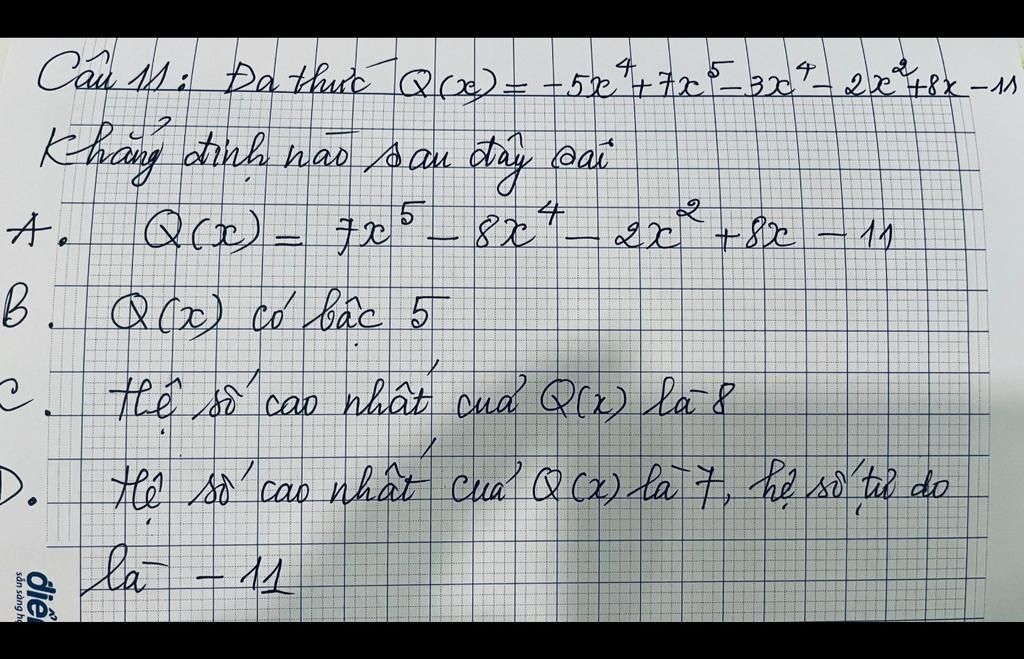 Câu 11: Đa thức Q(x) = -5x⁴ + 7x⁵ - 3x⁴ - 2x² + 8x - 11
Khẳng định nào sau đây sai
A. Q(x) = 7x⁵ - 8x⁴ - 2x² + 8x - 11
B. Q(x) có bậc 5
C. Hệ số cao nhất của Q(x) là 8
D. Hệ số cao nhất của Q(x) là 7, hệ số tự do
là -11